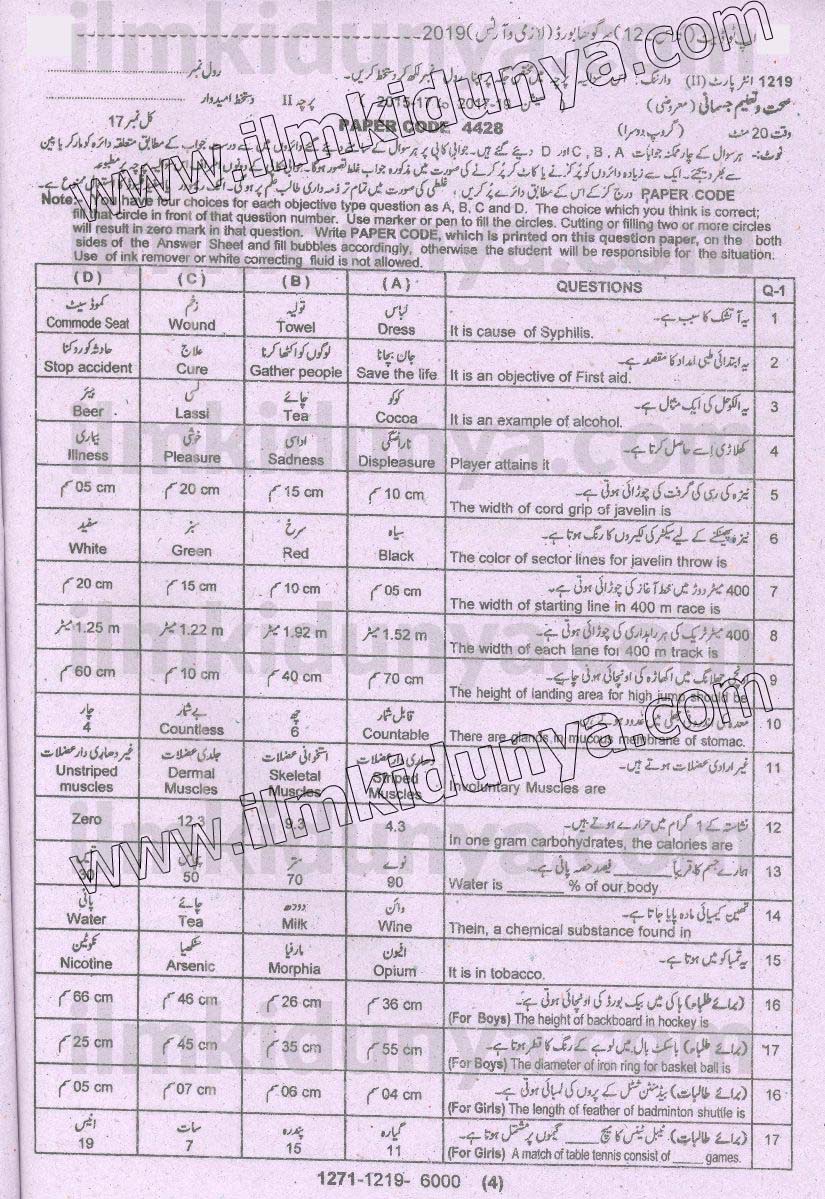 2019(لازمی و آرٹس)
1219 انٹر پارٹ (II)
رول نمبر
صحت و تعلیم جسمانی (معروضی)
پرچہ II
دستخط امیدوار
وقت 20 منٹ (گروپ دوسرا)
PAPER CODE 4428
کل نمبر 17
Note: You have four choices for each objective type question as A, B, C and D. The choice which you think is correct;
fill that circle in front of that question number. Use marker or pen to fill the circles. Cutting or filling two or more circles
will result in zero mark in that question. Write PAPER CODE, which is printed on this question paper, on the both
sides of the Answer Sheet and fill bubbles accordingly, otherwise the student will be responsible for the situation.
Use of ink remover or white correcting fluid is not allowed.
(D) (C) (B) (A) QUESTIONS Q-1
کموڈ سیٹ زخم تولیہ لباس یہ آتشک کا سبب ہے۔ 1
Commode Seat Wound Towel Dress It is cause of Syphilis.
حادثہ کو روکنا علاج لوگوں کو اکٹھا کرنا جان بچانا یہ ابتدائی طبی امداد کا مقصد ہے۔ 2
Stop accident Cure Gather people Save the life It is an objective of First aid.
بیئر لسی چائے کوکو یہ الکوحل کی ایک مثال ہے۔ 3
Beer Lassi Tea Cocoa It is an example of alcohol.
بیماری خوشی اداسی ناراضگی کھلاڑی اسے حاصل کرتا ہے۔ 4
Illness Pleasure Sadness Displeasure Player attains it
05 cm سم 20 cm سم 15 cm سم 10 cm سم نیزہ کی رسی کی گرفت کی چوڑائی ہوتی ہے۔ 5
The width of cord grip of javelin is
سفید سبز سرخ سیاہ نیزہ پھینکنے کے لیے سیکٹر کی لکیروں کا رنگ ہوتا ہے۔ 6
White Green Red Black The color of sector lines for javelin throw is
20 cm سم 15 cm سم 10 cm سم 05 cm سم 400 میٹر دوڑ میں خط آغاز کی چوڑائی ہوتی ہے۔ 7
The width of starting line in 400 m race is
1.25 m میٹر 1.22 m میٹر 1.92 m میٹر 1.52 m میٹر 400 میٹر ٹریک کی ہر راہداری کی چوڑائی ہوتی ہے۔ 8
The width of each lane for 400 m track is
60 cm سم 10 cm سم 40 cm سم 70 cm سم اونچی چھلانگ میں اکھاڑہ کی اونچائی ہونی چاہیے۔ 9
The height of landing area for high jump should be
چار بے شمار چھ قابل شمار 10
4 Countless 6 Countable There are glands in mucous membrane of stomac.
غیر دھاری دار عضلات جلدی عضلات استخوانی عضلات دھاری دار عضلات غیر ارادی عضلات ہوتے ہیں۔ 11
Unstriped muscles Dermal Muscles Skeletal Muscles Striped Muscles Involuntary Muscles are
Zero 12.3 9.3 4.3 نشاستہ کے 1 گرام میں حرارے ہوتے ہیں۔ 12
In one gram carbohydrates, the calories are
ستر نوے ہمارے جسم کا تقریباً ______ فیصد حصہ پانی ہے۔ 13
30 50 70 90 Water is _______ % of our body.
پانی چائے دودھ وائن تھین کیمیائی مادہ پایا جاتا ہے۔ 14
Water Tea Milk Wine Thein, a chemical substance found in
نکوٹین سنکھیا مارفیا افیون یہ تمباکو میں ہوتا ہے۔ 15
Nicotine Arsenic Morphia Opium It is in tobacco.
66 cm سم 46 cm سم 26 cm سم 36 cm سم (برائے طلباء) ہاکی میں بیک بورڈ کی اونچائی ہوتی ہے۔ 16
(For Boys) The height of backboard in hockey is
25 cm سم 45 cm سم 35 cm سم 55 cm سم (برائے طلباء) باسکٹ بال میں لوہے کے رنگ کا قطر ہوتا ہے۔ 17
(For Boys) The diameter of iron ring for basket ball is
05 cm سم 07 cm سم 06 cm سم 04 cm سم (برائے طالبات) بیڈمنٹن شٹل کے پروں کی لمبائی ہوتی ہے۔ 16
(For Girls) The length of feather of badminton shuttle is
انیس سات پندرہ گیارہ (برائے طالبات) ٹیبل ٹینس کا میچ _____ گیموں پر مشتمل ہوتا ہے۔ 17
19 7 15 11 (For Girls) A match of table tennis consist of _____ games.
1271-1219- 6000 (4)
www.ilmkidunya.com
www.ilmkidunya.com